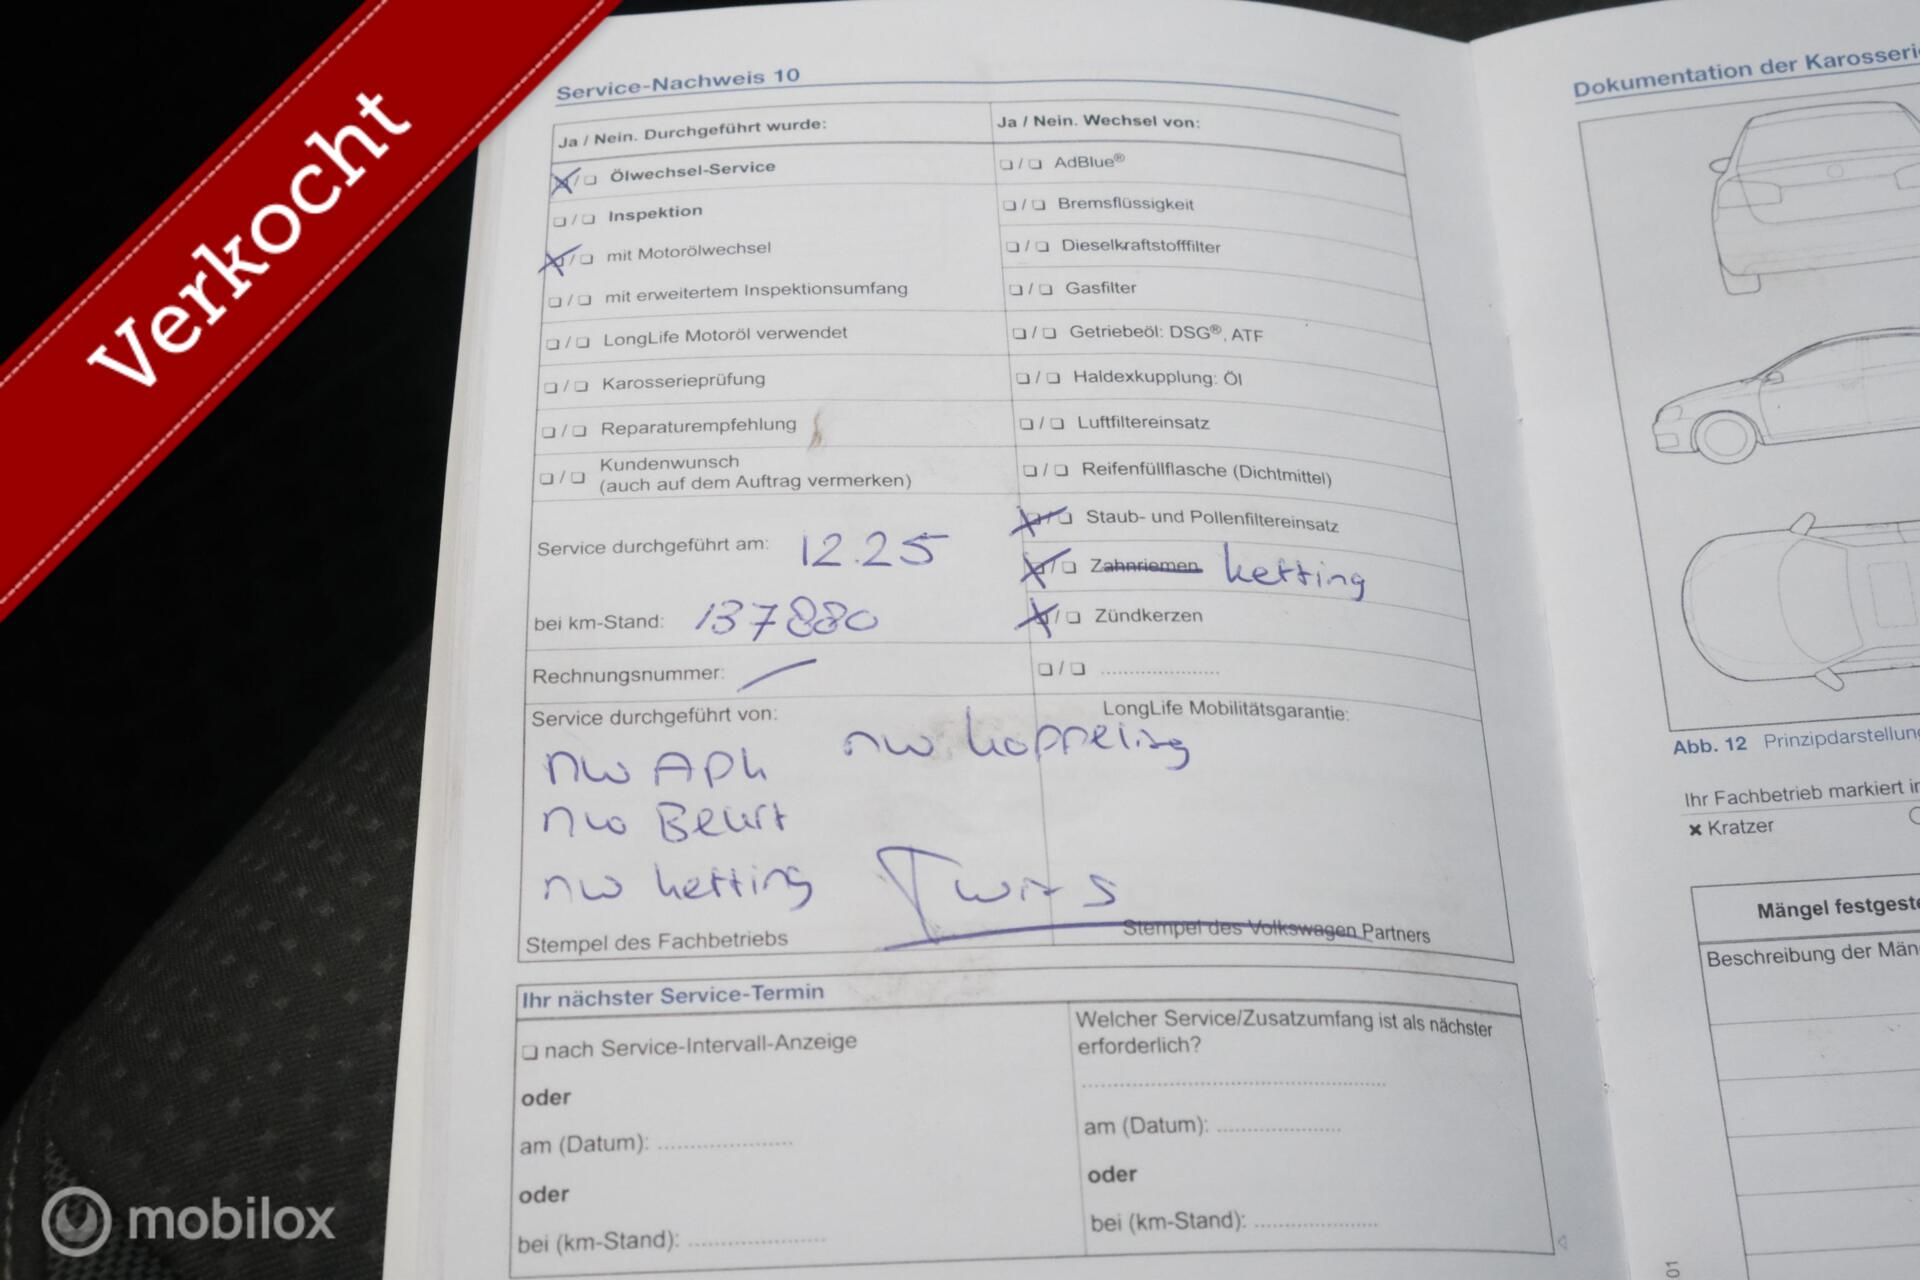 Verkocht
Service-Nachweis 10
Ja / Nein. Durchgeführt wurde:
❏ / ❏ Ölwechsel-Service
❏ / ❏ Inspektion
❏ / ❏ mit Motorölwechsel
❏ / ❏ mit erweitertem Inspektionsumfang
❏ / ❏ LongLife Motoröl verwendet
❏ / ❏ Karosserieprüfung
❏ / ❏ Reparaturempfehlung
❏ / ❏ Kundenwunsch
(auch auf dem Auftrag vermerken)
Service durchgeführt am: 12.25
bei km-Stand: 137880
Rechnungsnummer: /
Ja / Nein. Wechsel von:
❏ / ❏ AdBlue®
❏ / ❏ Bremsflüssigkeit
❏ / ❏ Dieselkraftstofffilter
❏ / ❏ Gasfilter
❏ / ❏ Getriebeöl: DSG®, ATF
❏ / ❏ Haldexkupplung: Öl
❏ / ❏ Luftfiltereinsatz
❏ / ❏ Reifenfüllflasche (Dichtmittel)
❏ / ❏ Staub- und Pollenfiltereinsatz
❏ / ❏ Zahnriemen ketting
❏ / ❏ Zündkerzen
❏ / ❏ ......................
Service durchgeführt von:
LongLife Mobilitätsgarantie:
nw APK
nw koppeling
nw Beurt
nw ketting
Stempel des Fachbetriebs
Stempel des Volkswagen Partners
Ihr nächster Service-Termin
❏ nach Service-Intervall-Anzeige
oder
am (Datum): ......................
oder
bei (km-Stand): ......................
Welcher Service/Zusatzumfang ist als nächster
erforderlich?
..................................................
am (Datum): ......................
oder
bei (km-Stand): ......................
Dokumentation der Karosseri
Abb. 12 Prinzipdarstellung
Ihr Fachbetrieb markiert in
✖ Kratzer
Mängel festgeste
Beschreibung der Män
01
mobilox